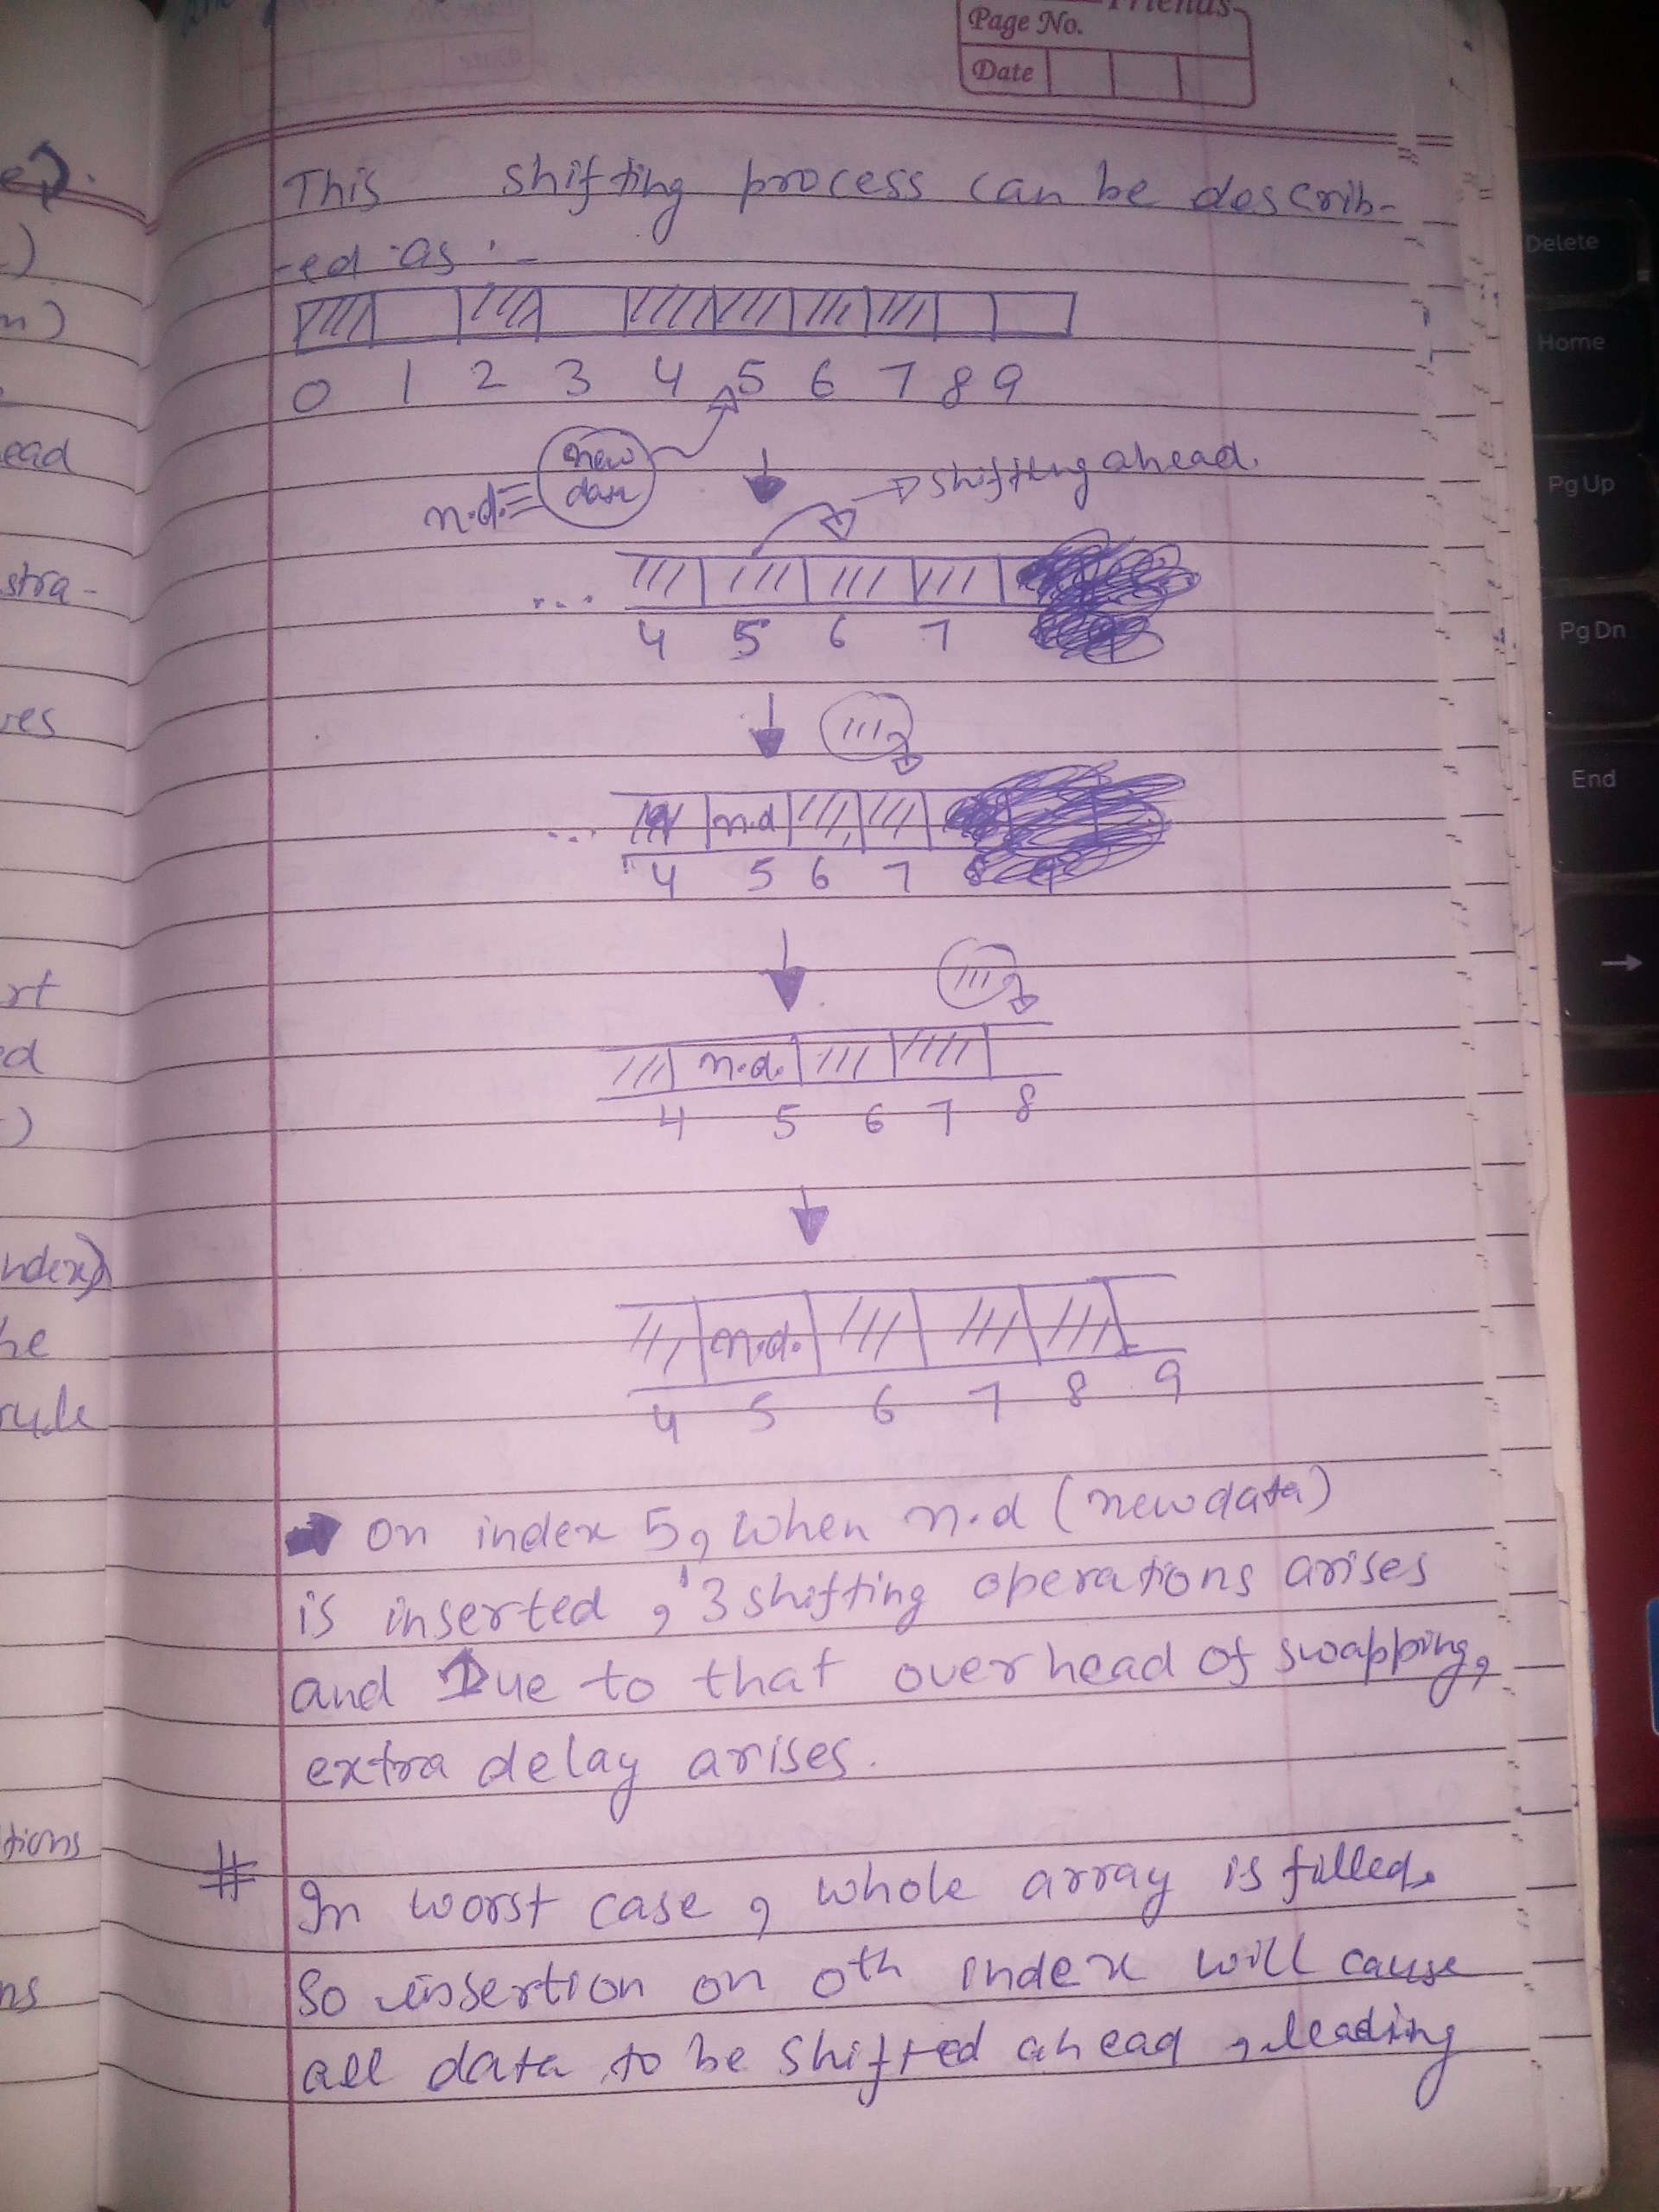 Friends
Page No.
Date
This shifting process can be describ-
-ed as :-
0 1 2 3 4 5 6 7 8 9
new
data
n.d. =
shifting ahead.
...
4 5 6 7
n.d
...
4 5 6 7 8
n.d.
4 5 6 7 8
n.d.
4 5 6 7 8 9
on index 5, when n.d (new data)
is inserted, 3 shifting operations arises
and Due to that overhead of swapping,
extra delay arises.
# In worst case, whole array is filled.
So insertion on 0th index will cause
all data to be shifted ahead, leading
ead
stra-
ves
rt
ed
)
ndex)
he
rule
tions
ns
Delete
Home
Pg Up
Pg Dn
End
→